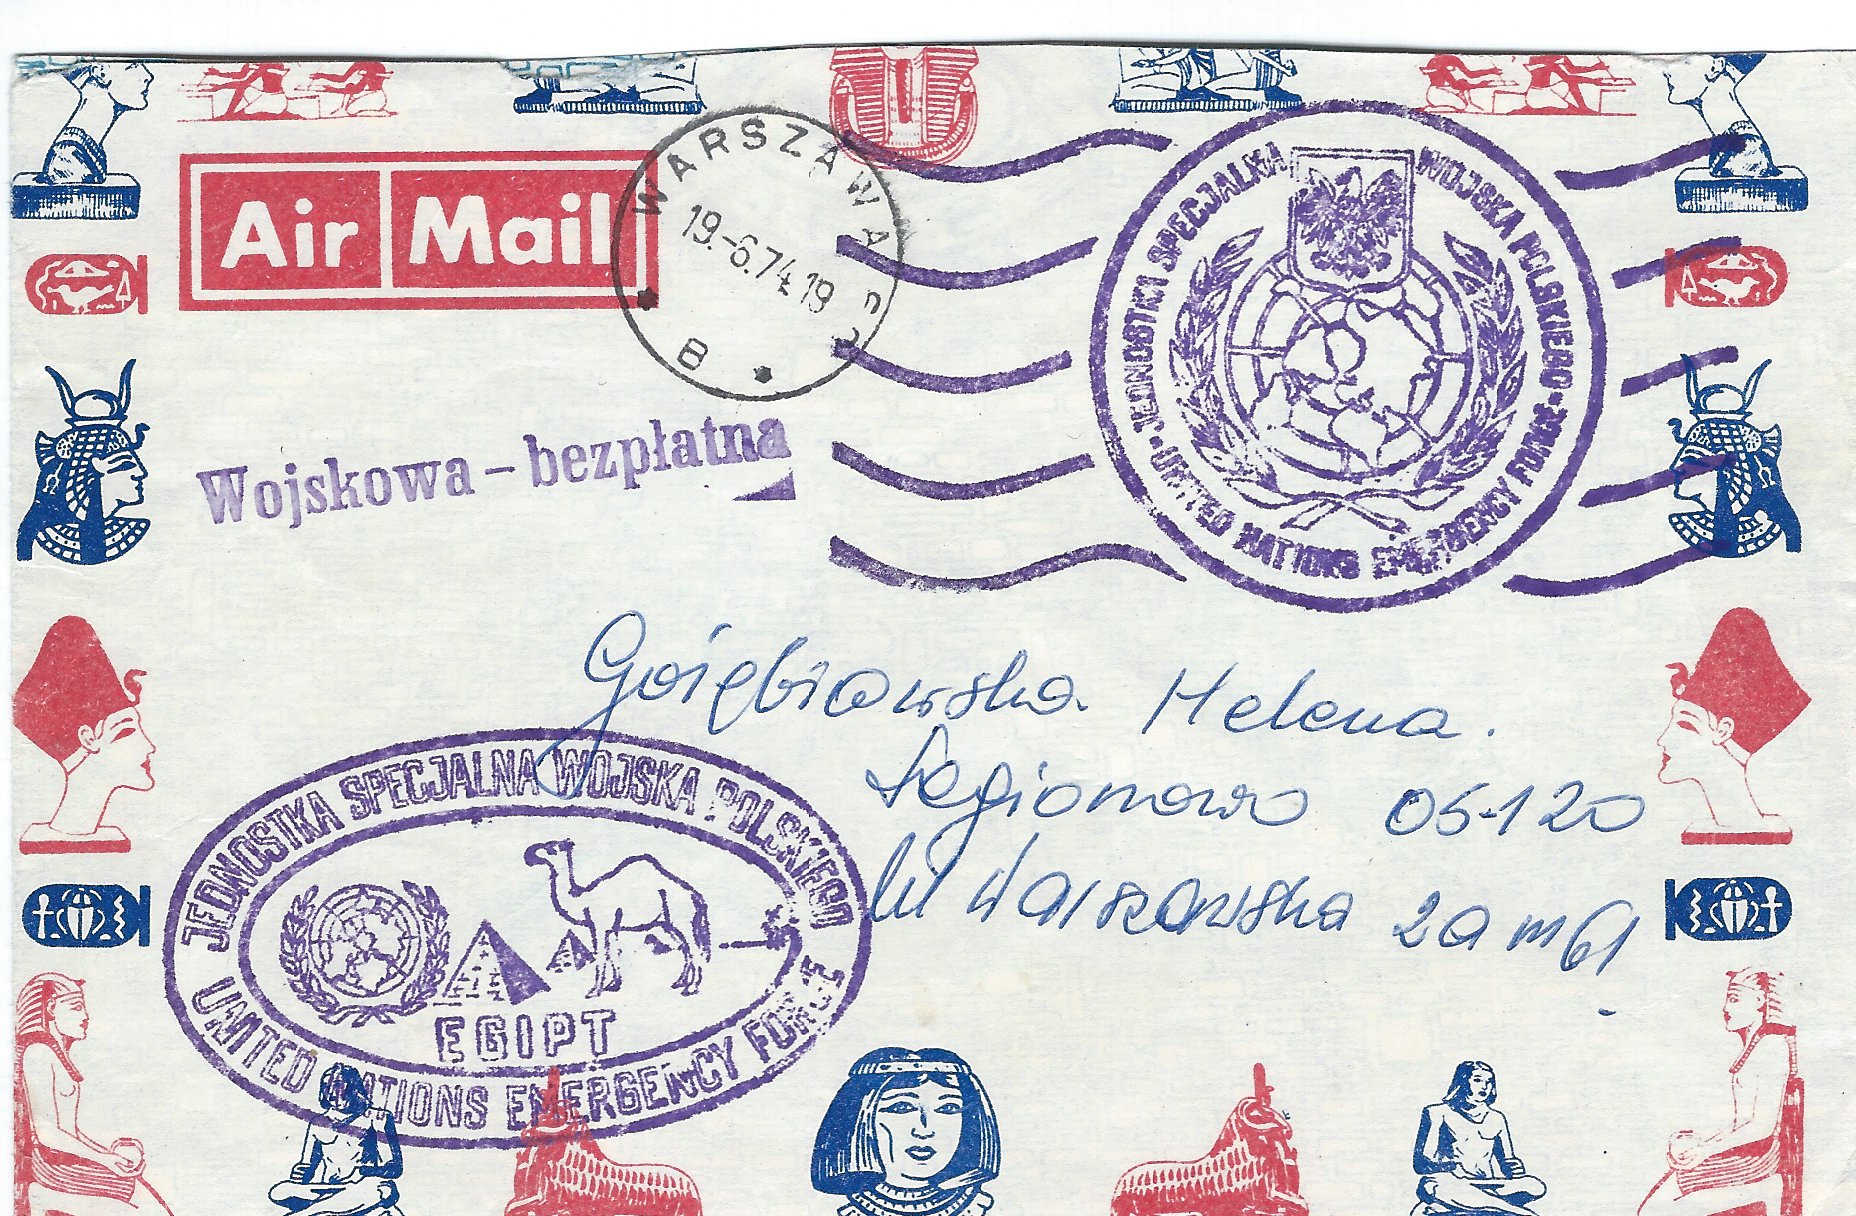 Air Mail
WARSZAWA
19.-6.74.19
B
JEDNOSTKI SPECJALNA WOJSKA POLSKIEGO
UNITED NATIONS EMERGENCY FORCE
Wojskowa – bezpłatna
Gołębiowska Helena.
Legionowo 05-120
Warszawska 20 m 61
JEDNOSTKA SPECJALNA WOJSKA POLSKIEGO
EGIPT
UNITED NATIONS EMERGENCY FORCE